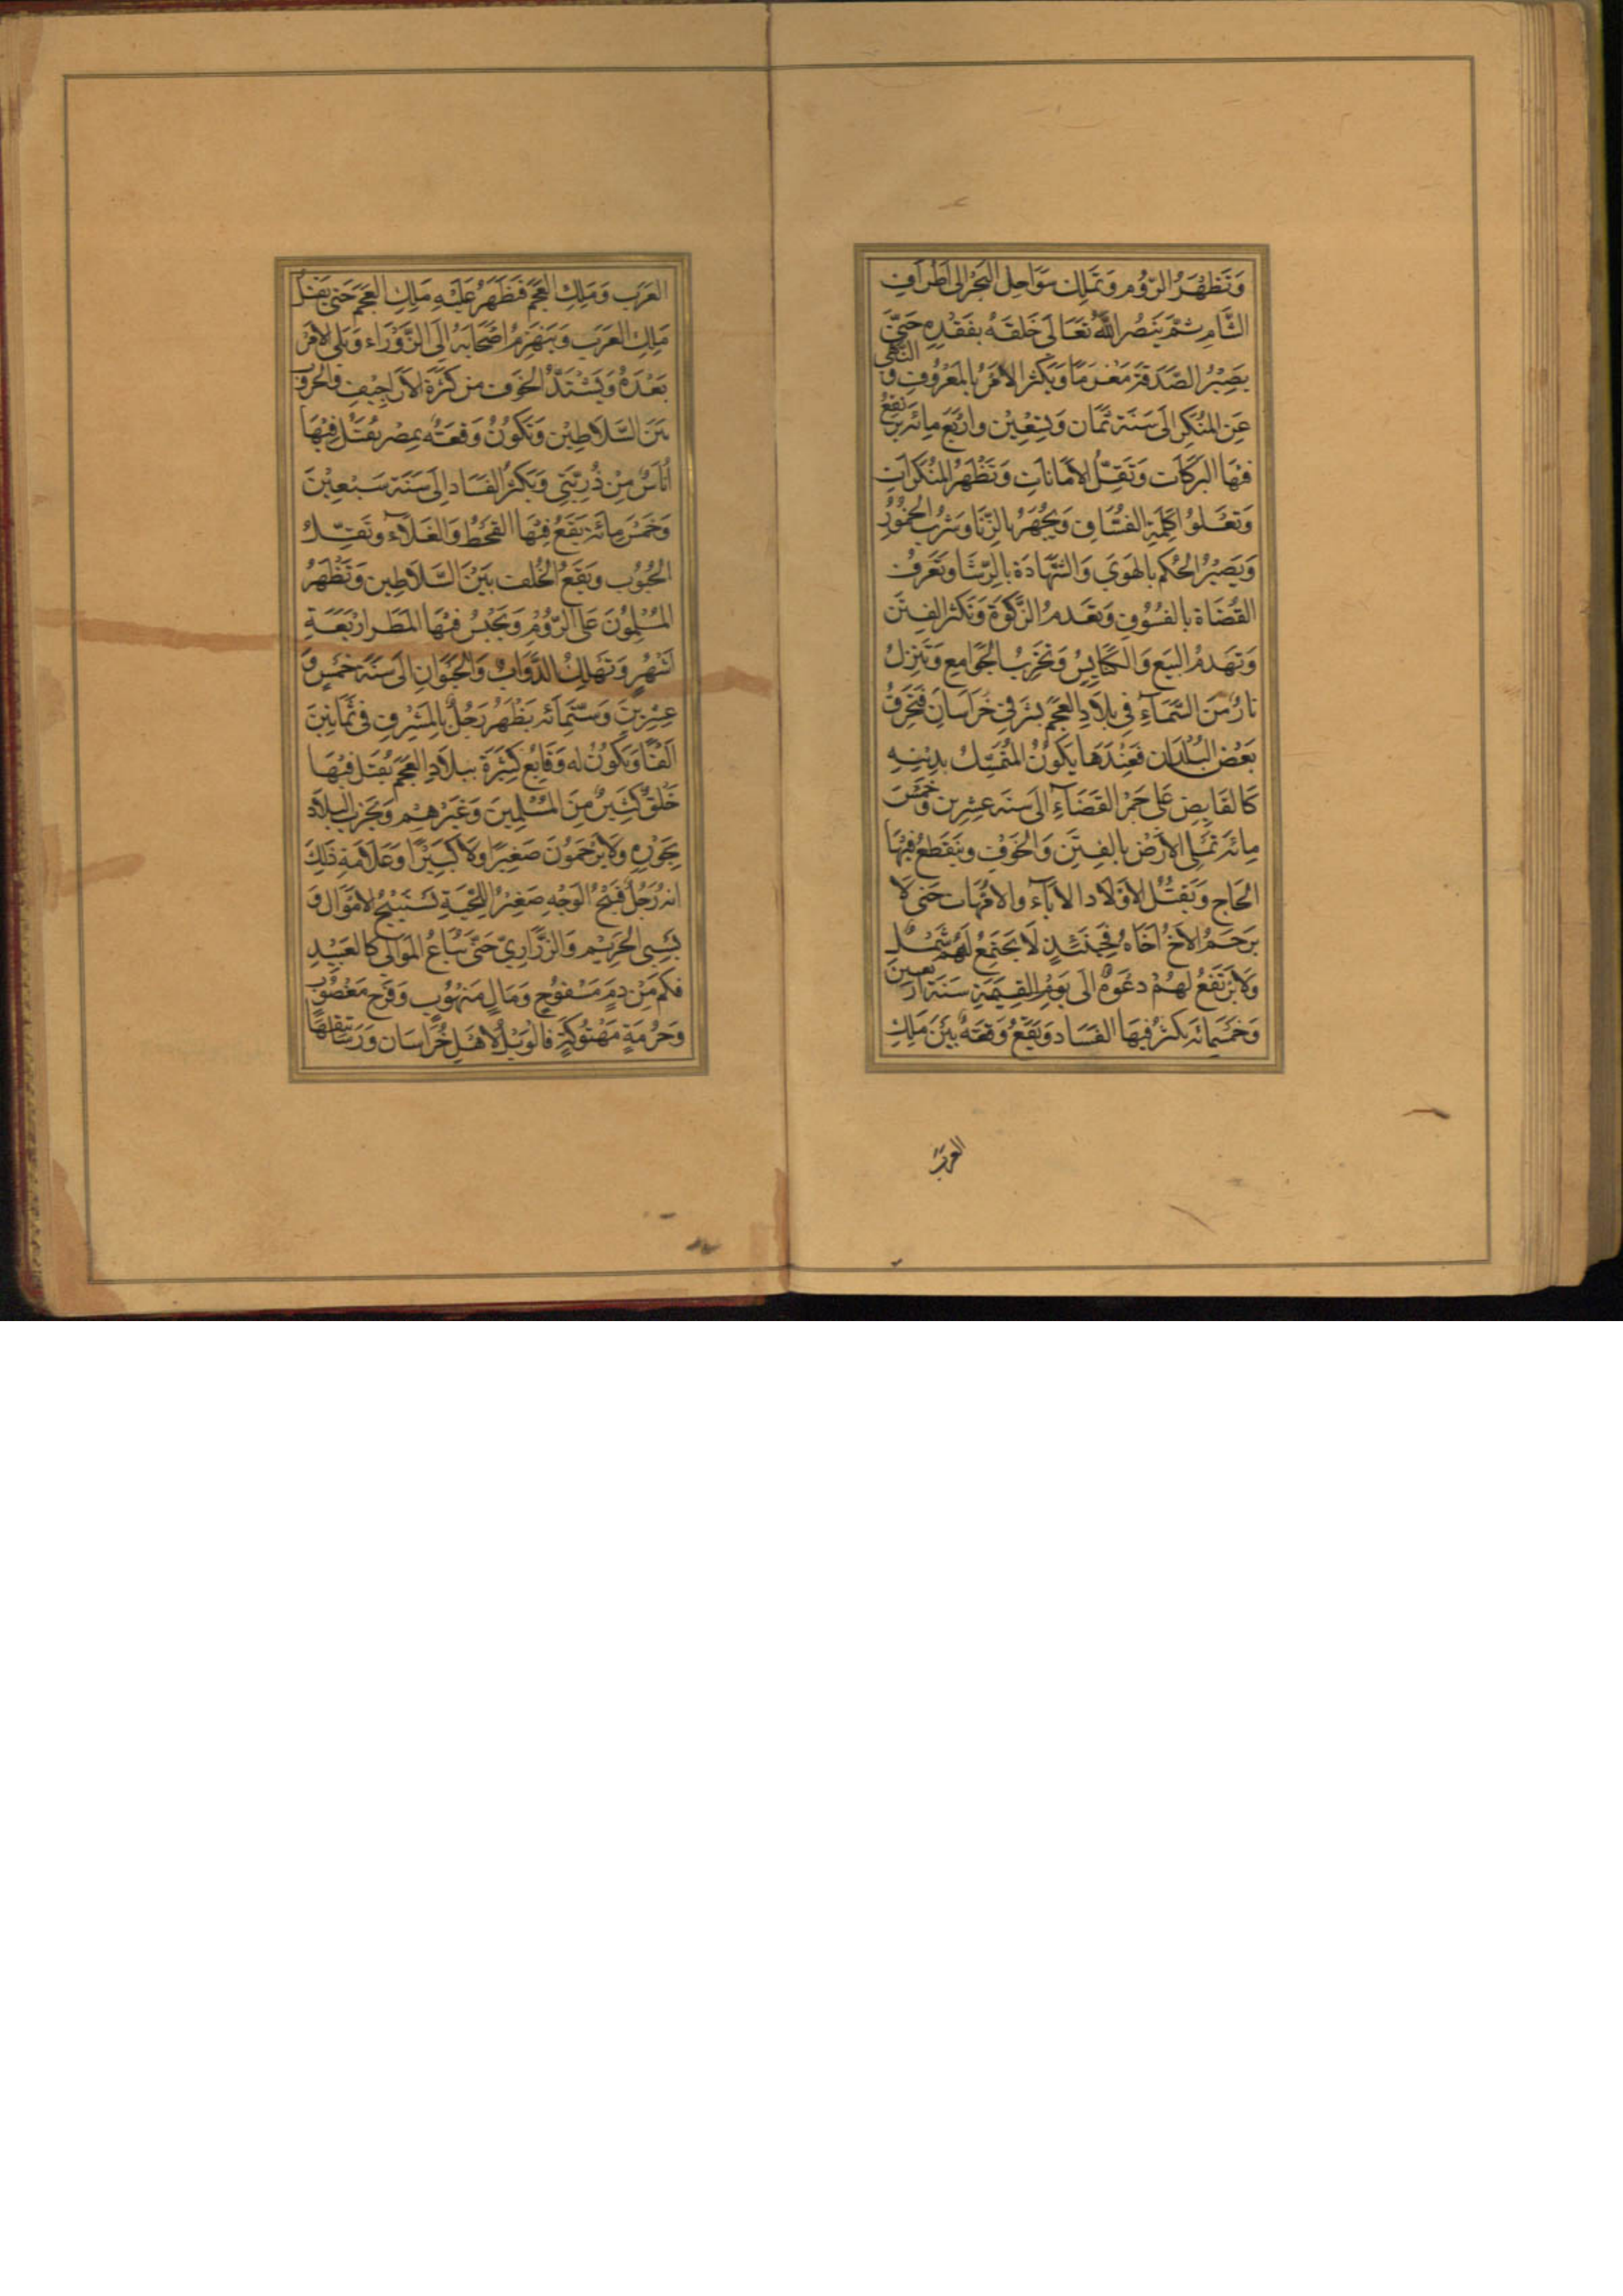 وَتَظْهَرُ الرُّوُمِ وَتَمْلِك سَوَاحِلِ البَحْرِ اِلَى اَطْرَافِ
الشَّامِ ثُمَّ يَنصُر اللّٰهُ تَعَالَى خَلقَهُ بفَقْدِهِ حَتّىَ
يَصِيْرُ الصَّدَقَةَ مَغرَمًا وَيَكثر الاَمْرُ بالمَعْرُوفِ وَ النَّهْى
عَنِ المُنْكَرِ اِلَى سَنَة ثَمَان وَتِسْعِيْن وارْبَع مِائة يَرتَفِعُ
فيْهَا البَرَكَات وَتَقِلُّ الاَمَانَاتِ وَتَظْهَرُ المُنكَرَاتِ
وَتَعْلوُا كَلِمَةِ الفُسَّاقِ وَيُجْهَرُ بالزِّنَا وَشرْب الخُمُوُرُ
وَيَصيْرُ الحُكم بالهَوَى وَالشَّهَادَة بالرِّشَا وَتَعَرف
القُضَاة بالفُسُوُقِ وَتعْدَمُ الزَّكوَة وَتَكثر الفِتَن
وَتهدَمُ البِيَع وَالكَنَايِسُ وَتخَرِبُ الجَوَامِع وَتَنْزِلُ
نَارٌ مِنَ السَّمَآءِ فِي بِلَادِ العَجَمْ بشَرقيّ خُرَاسَان فتَحْرقُ
بَعْض البُلْدَان فَعِنْدَهَا يَكُوُنُ المُتَمسّكُ بِدِيْنِهِ
كَالقَابِضِ عَلى جَمْرُ الغَضَآءِ اِلَى سَنَه عِشرِين وَخَمْسَ
مِائة تَمتَلِى الاَرْضُ بالفِتَن وَالخَوْفِ وينقَطِعُ فِيْهَا
الحَاج وَيَقتُل الاَوْلَاد الآبَآء والامَّهَات حَتى لَا
يَرحَمُ الاخُ اَخَاهُ فحِيْنَئِذٍ لَا يَجتَمعُ لَهُمْ شَمْلٌ
وَلَا يَرْتَفعُ لَهُمْ دعْوَةٌ اِلَى يَوْمِ القِيمَةِ سَنَة اَربَعيْن
وَخَمْسِمِائة يَكثرُ فيْهَا الفَسَاد وَيَقَعُ وَقعَةٌ بَيْنَ مَلِكِ
العرَبْ
العَرَب وَمَلِكِ العَجَمْ فَظَهَرُ عَلَيْهِ مَلِكِ العَجَمْ حَتى يَقتلُ
مَلِكِ العَرَب وَيَنهَزمُ اَصْحَابهُ اِلَى الزَّوْرَاء وَيَلى الاَمْرُ
بَعْدَهُ وَيَشتَدُّ الخَوَف من كَثرَة الاَرَاجِيفِ وَالحرُوُب
بَيْنَ السَّلَاطِيْن وَتَكُوُنُ وَقعَةٌ بمِصْر يُقتَلُ فِيْهَا
اُنَاسٌ مِنْ ذُرِيَّتَى وَيَكثرُ الفَسَاد اِلَى سَنَة سَبْعِيْنَ
وَخَمْسَ مِائة يَقَعُ فِيْهَا القَحَطُ وَالغَلَآء وتَقِلُّ
الحُبُوُب وَيَقَعُ الخُلْفُ بَيْنَ السَّلَاطِين وَتَظْهَرُ
المُسْلِموُنَ عَلَى الرُّوُمْ وَيَحْبَسُ فِيْهَا المَطَر اَرْبَعَةِ
اَشهُرٍ وَتَهْلِكُ الدَّوَابّ وَالحَيَوَان اِلَى سَنَة خَمْسٍ وَ
عِشرِيْنَ وَسِتِّمِائة يَظْهَرُ رَجُلٌ بالمَشرِقِ فِى ثَمَانِيْنَ
اَلفًا وَيَكُوُنُ له وَقَايعُ كَثيْرَة بِبلَادِ العَجَمْ يُقتَلُ فِيْهَا
خَلْقٌ كَثِيْرٌ مِنَ المُسْلِمِيْنَ وَغَيْرهِمْ وَيَخرب البلَاد
بِجَوْرِهِ وَلَا يَرْحَمُوُنَ صَغِيْرًا وَلَا كَبيْرًا وَعَلَامَةِ ذَلِكَ
انهُ رَجُلٌ قَبيْحُ الوَجْهِ صَغِيْرُ اللِّحْيَةِ يَسْتَبيْحُ الاَمْوَال وَ
يَسْبِى الحَرِيْمِ وَالذَّرَارِيّ حَتَّى يُبَاعُ المَوَالى كَالعَبيْدِ
فكَم مِنْ دَمٍ مَسْفوُحٍ وَمَالٍ مَنهُوُبٍ وَفَرْجٍ مَغْصُوبٍ
وَحُرْمَةٍ مَهْتوُكَةٍ فَالوَيْلُ لِاَهْلِ خُرَاسَان وَرَسَاتيقِهَا